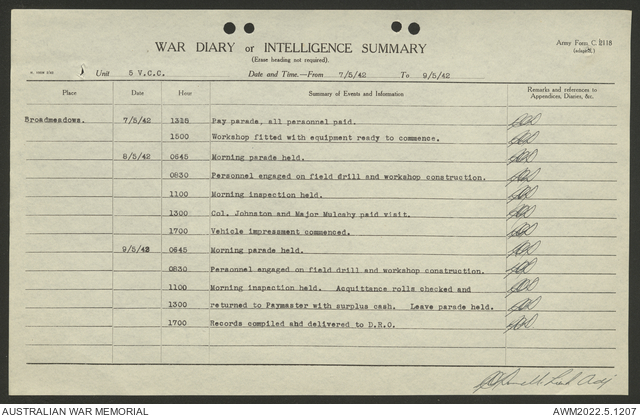 Army Form C 2118
(adapted)
WAR DIARY or INTELLIGENCE SUMMARY
(Erase heading not required).
Unit 5 V.C.C. Date and Time.—From 7/5/42 To 9/5/42
Place Date Hour Summary of Events and Information Remarks and references to Appendices, Diaries, &c.
Broadmeadows. 7/5/42 1335 Pay parade, all personnel paid.
1500 Workshop fitted with equipment ready to commence.
8/5/42 0645 Morning parade held.
0830 Personnel engaged on field drill and workshop construction.
1100 Morning inspection held.
1300 Col. Johnston and Major Mulcahy paid visit.
1700 Vehicle impressment commenced.
9/5/42 0645 Morning parade held.
0830 Personnel engaged on field drill and workshop construction.
1100 Morning inspection held. Acquittance rolls checked and
1300 returned to Paymaster with surplus cash. Leave parade held.
1700 Records compiled and delivered to D.R.O.
AUSTRALIAN WAR MEMORIAL AWM2022.5.1207